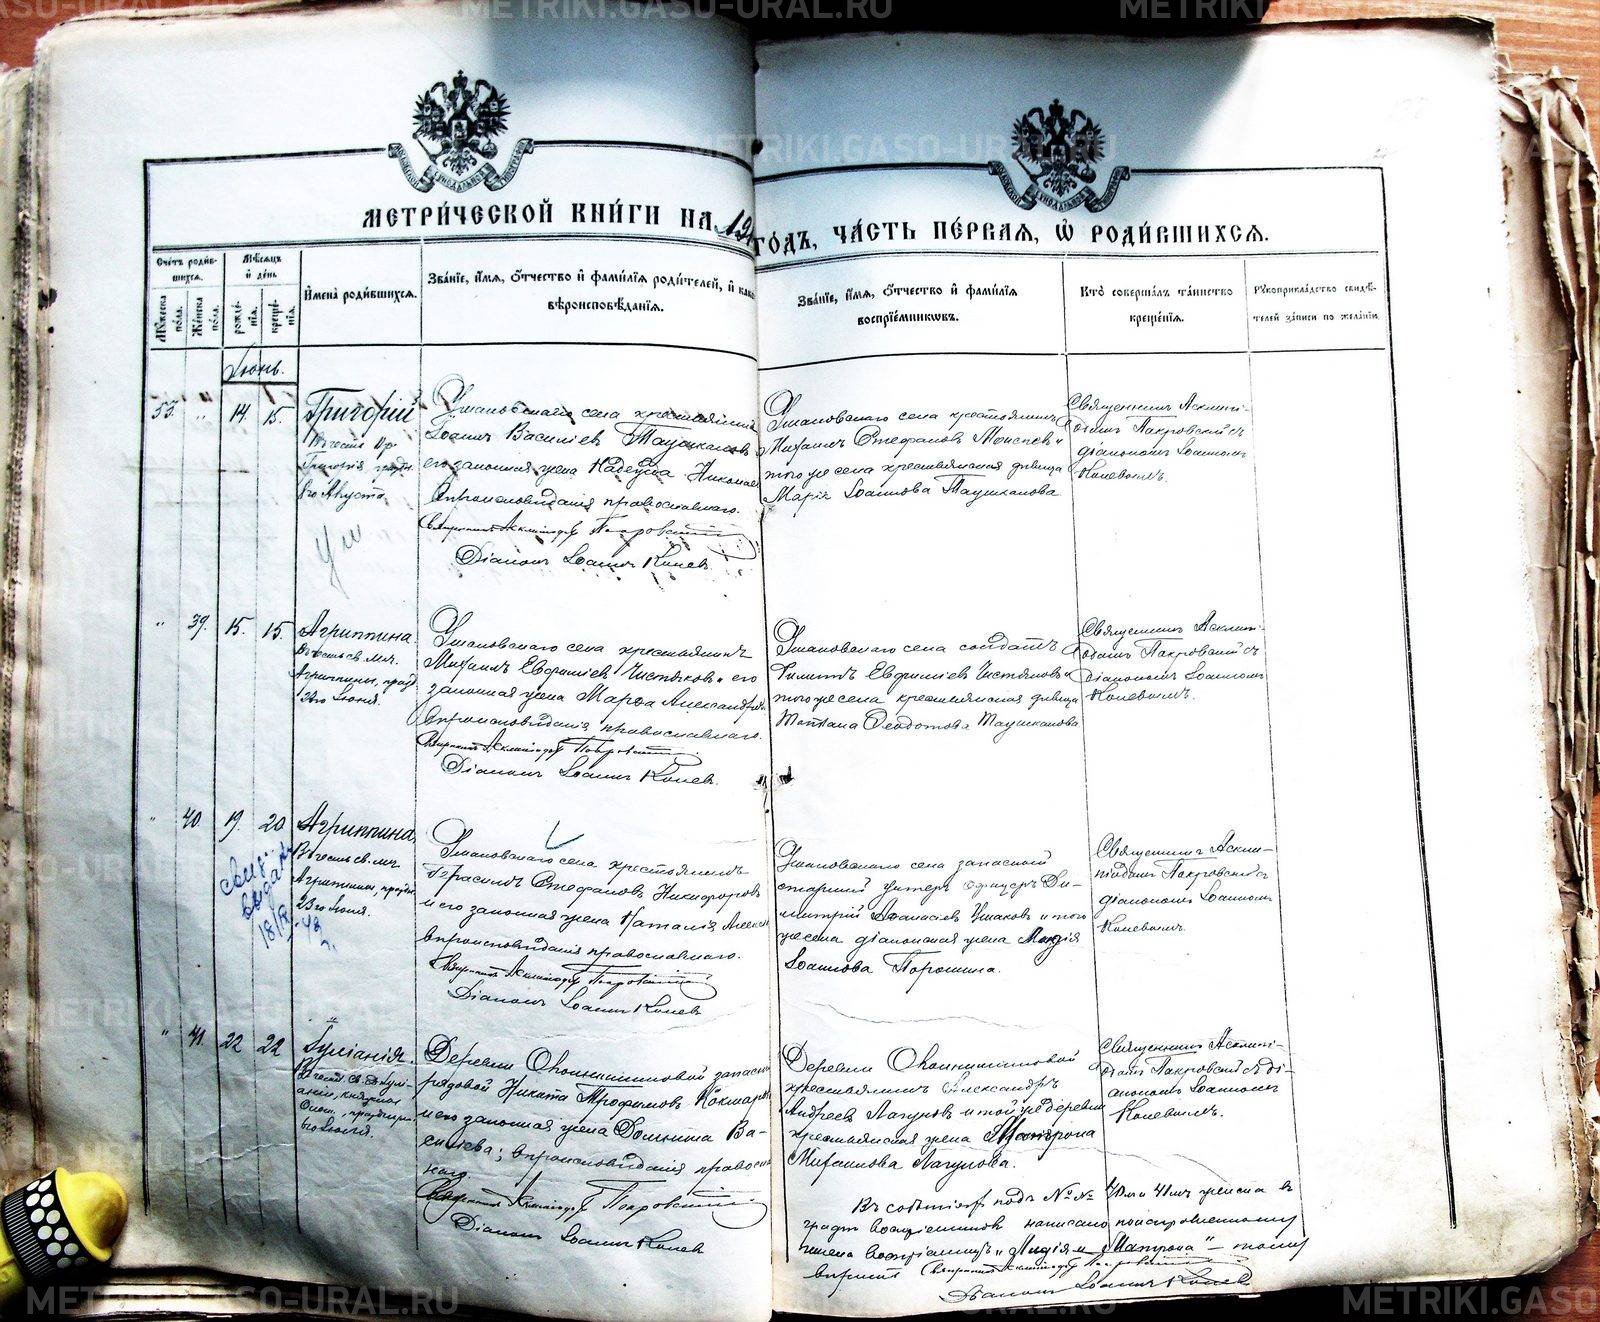 METRIKI.GASO-URAL.RU
МЕТРИ́ЧЕСКОЙ КНИ́ГИ НА 19
ГО́ДЪ, ЧА́СТЬ ПЕ́РВАЯ, Ѡ РОДИ́ВШИХСЯ.
Сче́тъ роди́в-
шихся.
Му́жеска
по́ла.
Же́нска
по́ла.
Мѣ́сяцъ
и҆ де́нь
рожде́-
нїя.
креще́-
нїя.
И҆мена̀ роди́вшихся.
Зва́нїе, и҆́мя, ѻ҆́тчество и҆ фами́лїя роди́телей, и҆ како
вѣроисповѣ́данїя.
Зва́нїе, и҆́мя, ѻ҆́тчество и҆ фами́лїя
воспрїе́мниковъ.
Кто̀ соверша́лъ та́инство
креще́нїя.
Рукоприкла́дство свидѣ́-
телей за́писи по жела́нїю.
Іюнь.
53. " 14. 15.
Григорій
Въ честь
Григорія
8го Августа
Ушаковскаго села крестьянинъ
Іоаннъ Василіевъ Таушкановъ
его законная жена Надежда Никола
вѣроисповѣданія православнаго.
Священникъ Асклипіодотъ Покровскій
Діаконъ Іоаннъ Коневъ
Ушаковскаго села крестьянинъ
Михаилъ Стефановъ Моисеевъ и
того же села крестьянская дѣвица
Марія Іоаннова Таушканова
Священникъ Асклипі-
одотъ Покровскій съ
діакономъ Іоанномъ
Коневымъ.
" 39. 15. 15.
Агриппина.
Въ честь св. мч.
Агриппины, празд.
23го Іюня.
Ушаковскаго села крестьянинъ
Михаилъ Евфиміевъ Чистяковъ и его
законная жена Марѳа Александр
вѣроисповѣданія православнаго.
Священникъ Асклипіодотъ Покровскій
Діаконъ Іоаннъ Коневъ.
Ушаковскаго села солдатъ
Филиппъ Евфиміевъ Чистяковъ и
того же села крестьянская дѣвица
Татіана Ѳеодотова Таушканова
Священникъ Асклипі-
одотъ Покровскій съ
Діакономъ Іоанномъ
Коневымъ.
" 40. 19. 20
Агриппина,
Въ честь св. мч.
Агриппины, празд.
23го Іюня.
свид.
выдано
Ушаковскаго села крестьянинъ
Герасимъ Стефановъ Никифоровъ
и его законная жена Наталія Алекс
вѣроисповѣданія православнаго.
Священникъ Асклипіодотъ Покровскій
Діаконъ Іоаннъ Коневъ
Ушаковскаго села запасной
старшій унтеръ офицеръ Ди-
митрій Аѳанасіевъ Ушаковъ и того
же села діаконская жена Лидія
Іоаннова Порошина.
Священникъ Аскли-
піодотъ Покровскій съ
діакономъ Іоанномъ
Коневымъ.
" 41. 22 22
Іуліанія.
Въ честь св. Іули-
аніи, княжны
6го Іюля.
Деревни запасн
рядовой Никита Трофимовъ
и его законная жена Домника Ва-
силіева; вѣроисповѣданія православ
наго
Священникъ Асклипіодотъ Покровскій
Діаконъ Іоаннъ Коневъ
Деревни
крестьянинъ Александръ
Андреевъ Лагуновъ и той же деревни
крестьянская жена Матрона
Михаилова Лагунова.
Священникъ Асклипі-
одотъ Покровскій съ ді-
акономъ Іоанномъ
Коневымъ.
Въ событіяхъ подъ №№ 40мъ и 41мъ женска въ
графѣ воспріемниковъ написано по исправленному
имена воспріемницъ „Лидія и Матрона" – тому
вѣрить Священникъ Асклипіодотъ Покровскій
Діаконъ Іоаннъ Коневъ